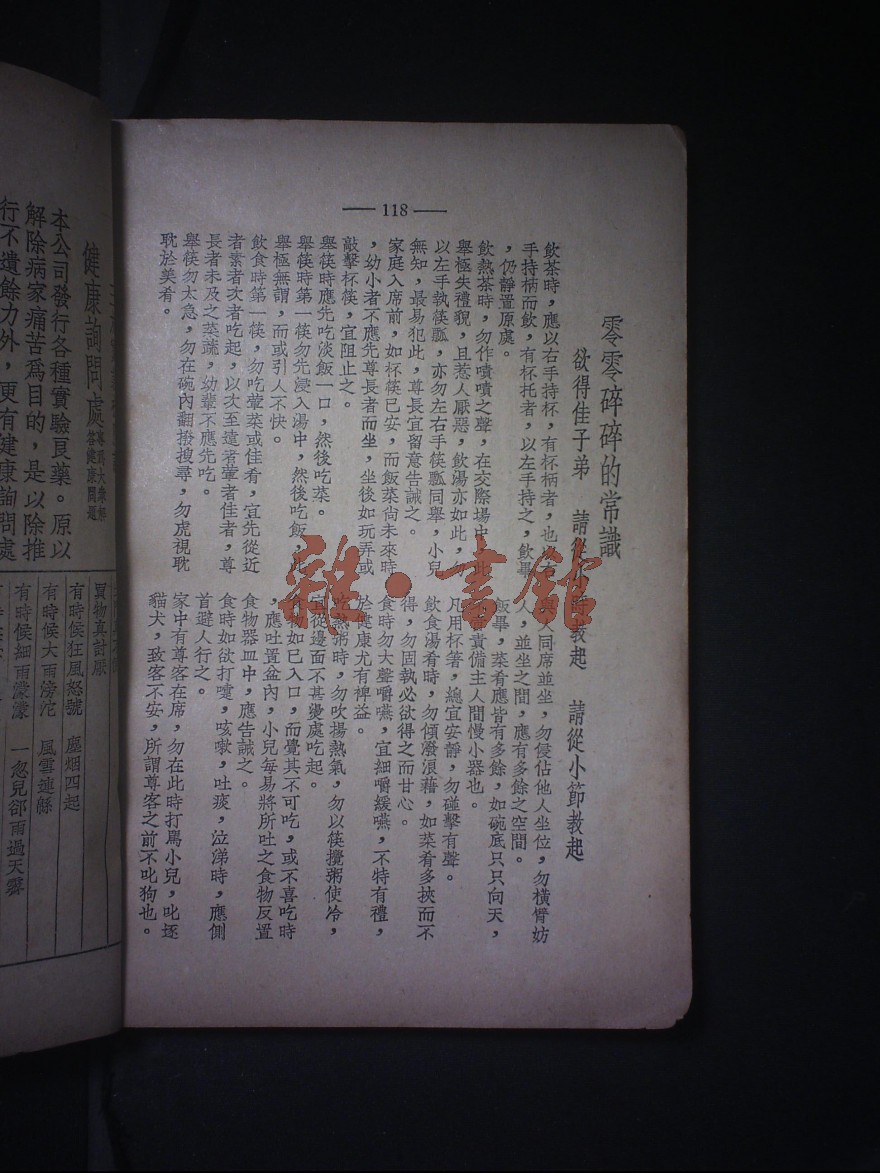 118
零零碎碎的常識
欲得佳子弟　請從小時教起　請從小節教起
飲茶時，應以右手持杯，有杯柄者，也以右
手持柄而飲，有杯托者，以左手持之，飲畢
，仍靜置原處。
飲熱茶時，勿作嘖嘖之聲，在交際場中，此
舉極失禮貌，且惹人厭惡，飲湯亦如此，勿
以左手執筷瓢，亦勿左右手筷瓢同舉，小兒
無知，最易犯此，尊長宜留意告誡之。
家庭入席前，如杯筷已安，而飯菜尚未來時
，幼小者不應先尊長者而坐，坐後如玩弄或
敲擊杯筷，宜阻止之。
舉筷時應先吃淡飯一口，然後吃菜。
舉筷時第一筷勿先浸入湯中，然後吃飯，此
舉極無謂，而或引人不快。
飲食時第一筷，勿吃葷菜或佳肴，宜先從近
者素者次者吃起，以次至遠者葷者佳者，尊
長者未及之菜蔬，幼輩不應先吃。
舉筷勿太急，勿在碗內翻撥搜尋，勿虎視耽
耽於美肴。
與人同席並坐，勿侵佔他人坐位，勿橫臂妨
人，並坐之間，應有多餘之空間。
飯畢，菜肴應皆有多餘，如碗底只只向天，
責備主人間慢小器也。
凡用杯箸，總宜安靜，勿碰擊有聲。
飲食湯肴時，勿傾潑浪藉，如菜肴多挾而不
得，勿固執必欲得之而甘心。
食時勿大聲嚼嚥，宜細嚼緩嚥，不特有禮，
於健康尤有裨益。
吃熱粥時，勿吹揚熱氣，勿以筷攪粥使冷，
宜從邊面不甚燙處吃起。
食物如已入口，而覺其不可吃，或不喜吃時
，應吐置盆內，小兒每易將所吐之食物反置
食物器皿中，應告誡之。
食時如欲打嚏，咳嗽，吐痰，泣涕時，應側
首避人行之。
家中有尊客在席，勿在此時打罵小兒，叱逐
貓犬，致客不安，所謂尊客之前不叱狗也。
健康詢問處
專爲大衆解
答健康問題
本公司發行各種實驗良藥。原以
解除病家痛苦爲目的，是以除推
行不遺餘力外，更有健康詢問處
買物真討厭
有時候狂風怒號　塵烟四起
有時候大雨滂沱　風雲連緜
有時候細雨濛濛　一忽兒卻雨過天霽
雜·書館